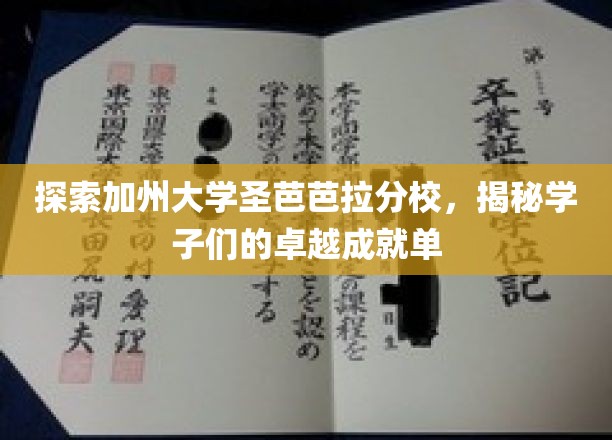 探索加州大学圣芭芭拉分校，揭秘学
子们的卓越成就单
第 号
卒業証 学位記
本学商学部 の課程を
日生
修めて本学 ことを認め
学士(商学)の学 する
平成
東京国際大 田村愛理
東京国際大 長田尻嗣夫